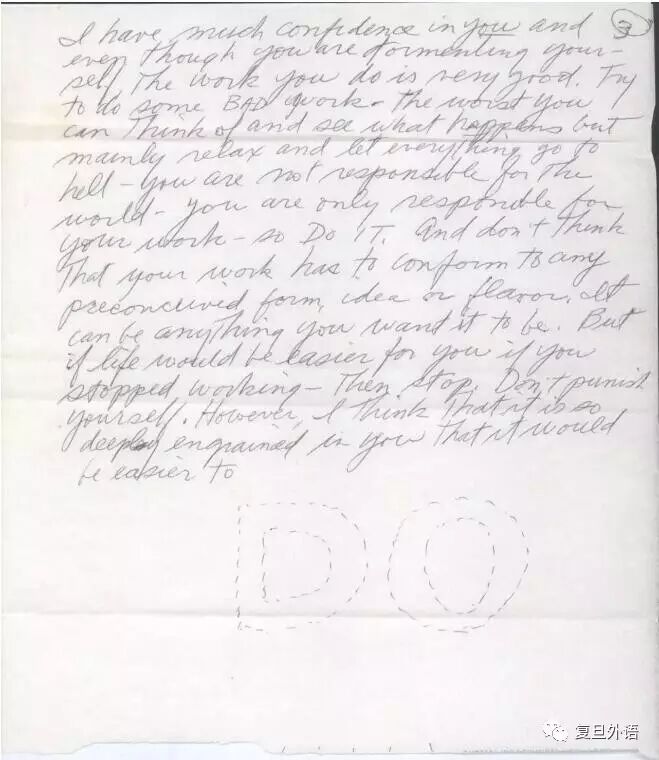 3
I have much confidence in you and
even though you are tormenting your-
self the work you do is very good. Try
to do some BAD work - the worst you
can think of and see what happens but
mainly relax and let everything go to
hell - you are not responsible for the
world - you are only responsible for
your work - so DO IT. And don't think
that your work has to conform to any
preconceived form, idea or flavor. It
can be anything you want it to be. But
if life would be easier for you if you
stopped working - then stop. Don't punish
yourself. However, I think that it is so
deeply engrained in you that it would
be easier to
DO
复旦外语